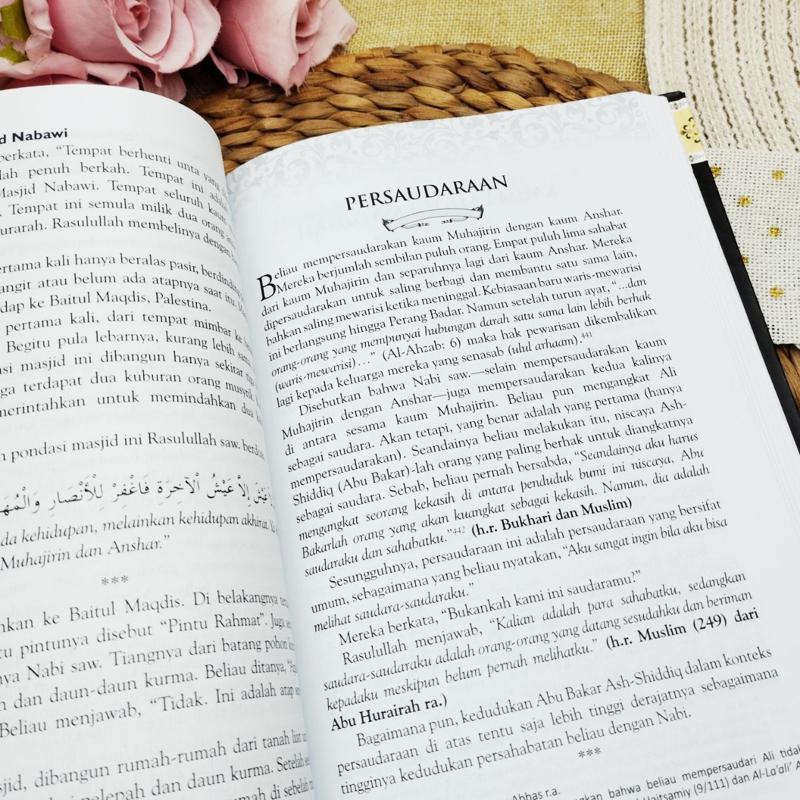 d Nabawi
berkata, "Tempat berhenti unta yang
lah penuh berkah. Tempat ini adal
Masjid Nabawi. Tempat seluruh kaum
. Tempat ini semula milik dua orang
urarah. Rasulullah membelinya dengan
ertama kali hanya beralas pasir, berdinding
angit atau belum ada atapnya saat itu.
dap ke Baitul Maqdis, Palestina.
pertama kali, dari tempat mimbar ke
Begitu pula lebarnya, kurang lebih
asi masjid ini dibangun hanya sekitar
ga terdapat dua kuburan orang musyrik,
merintahkan untuk memindahkan dua
n pondasi masjid ini Rasulullah saw. berdoa
إِلاَّ عَيْشُ الْآخِرَةِ فَاغْفِرْ لِلْأَنْصَارِ وَالْمُهَ
da kehidupan, melainkan kehidupan akhirat.
Muhajirin dan Anshar."
***
hkan ke Baitul Maqdis. Di belakangnya
tu pintunya disebut "Pintu Rahmat". Juga
nya Nabi saw. Tiangnya dari batang pohon
n dan daun-daun kurma. Beliau ditanya,
Beliau menjawab, "Tidak. Ini adalah atap
sjid, dibangun rumah-rumah dari tanah liat
pelepah dan daun kurma. Setelah
di sebelah
PERSAUDARAAN
Beliau mempersaudarakan kaum Muhajirin dengan kaum Anshar.
Mereka berjumlah sembilan puluh orang. Empat puluh lima sahabat
dari kaum Muhajirin dan separuhnya lagi dari kaum Anshar. Mereka
dipersaudarakan untuk saling berbagi dan membantu satu sama lain,
bahkan saling mewarisi ketika meninggal. Kebiasaan baru waris-mewarisi
ini berlangsung hingga Perang Badar. Namun setelah turun ayat, "...dan
orang-orang yang mempunyai hubungan darah satu sama lain lebih berhak
(waris-mewarisi)…" (Al-Ahzab: 6) maka hak pewarisan dikembalikan
lagi kepada keluarga mereka yang senasab (ulul arhaam).441
Disebutkan bahwa Nabi saw.—selain mempersaudarakan kaum
Muhajirin dengan Anshar—juga mempersaudarakan kedua kalinya
di antara sesama kaum Muhajirin. Beliau pun mengangkat Ali
sebagai saudara. Akan tetapi, yang benar adalah yang pertama (hanya
mempersaudarakan). Seandainya beliau melakukan itu, niscaya Ash-
Shiddiq (Abu Bakar)-lah orang yang paling berhak untuk diangkatnya
sebagai saudara. Sebab, beliau pernah bersabda, "Seandainya aku harus
mengangkat seorang kekasih di antara penduduk bumi ini niscaya, Abu
Bakarlah orang yang akan kuangkat sebagai kekasih. Namun, dia adalah
saudaraku dan sahabatku."442 (h.r. Bukhari dan Muslim)
Sesungguhnya, persaudaraan ini adalah persaudaraan yang bersifat
umum, sebagaimana yang beliau nyatakan, "Aku sangat ingin bila aku bisa
melihat saudara-saudaraku."
Mereka berkata, "Bukankah kami ini saudaramu?"
Rasulullah menjawab, "Kalian adalah para sahabatku, sedangkan
saudara-saudaraku adalah orang-orang yang datang sesudahku dan beriman
kepadaku meskipun belum pernah melihatku." (h.r. Muslim (249) dari
Abu Hurairah ra.)
Bagaimana pun, kedudukan Abu Bakar Ash-Shiddiq dalam konteks
persaudaraan di atas tentu saja lebih tinggi derajatnya sebagaimana
tingginya kedudukan persahabatan beliau dengan Nabi.
***
Abbas r.a.
gkan bahwa beliau mempersaudari Ali tidak
Haitsamiy (9/111) dan Al-La'ali'